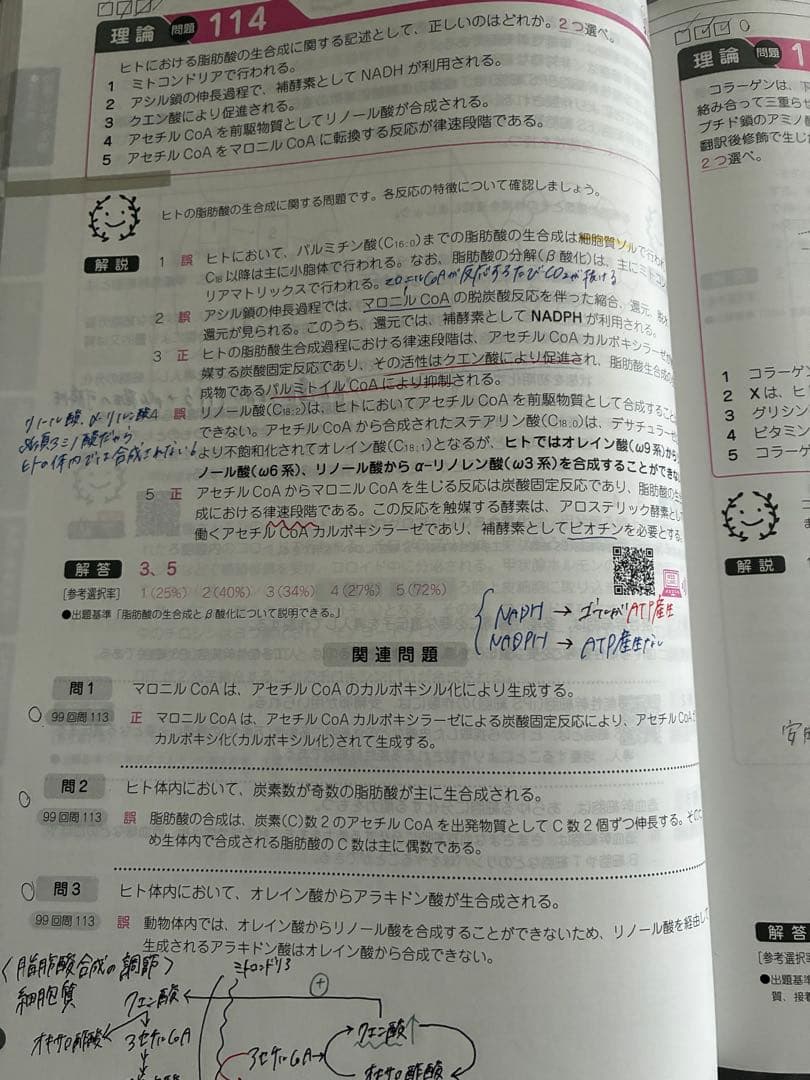 理論 問題 114
ヒトにおける脂肪酸の生合成に関する記述として、正しいのはどれか。2つ選べ。
1 ミトコンドリアで行われる。
2 アシル鎖の伸長過程で、補酵素としてNADHが利用される。
3 クエン酸により促進される。
4 アセチルCoAを前駆物質としてリノール酸が合成される。
5 アセチルCoAをマロニルCoAに転換する反応が律速段階である。
ヒトの脂肪酸の生合成に関する問題です。各反応の特徴について確認しましょう。
解説
1 誤 ヒトにおいて、パルミチン酸(C16:0)までの脂肪酸の生合成は細胞質ゾルで行われ
C18以降は主に小胞体で行われる。なお、脂肪酸の分解(β酸化)は、主にミトコン
リアマトリックスで行われる。
マロニルCoAが反応するたびCO2が抜ける
2 誤 アシル鎖の伸長過程では、マロニルCoAの脱炭酸反応を伴った縮合、還元、脱水
還元が見られる。このうち、還元では、補酵素としてNADPHが利用される。
3 正 ヒトの脂肪酸生合成過程における律速段階は、アセチルCoAカルボキシラーゼが
媒する炭酸固定反応であり、その活性はクエン酸により促進され、脂肪酸生合成の
成物であるパルミトイルCoAにより抑制される。
リノール酸、α-リノレン酸
必須アミノ酸だから
ヒトの体内では合成されない!
4 誤 リノール酸(C18:2)は、ヒトにおいてアセチルCoAを前駆物質として合成すること
できない。アセチルCoAから合成されたステアリン酸(C18:0)は、デサチュラーゼ
より不飽和化されてオレイン酸(C18:1)となるが、ヒトではオレイン酸(ω9系)から
ノール酸(ω6系)、リノール酸からα-リノレン酸(ω3系)を合成することができな
5 正 アセチルCoAからマロニルCoAを生じる反応は炭酸固定反応であり、脂肪酸の生
成における律速段階である。この反応を触媒する酵素は、アロステリック酵素として
働くアセチルCoAカルボキシラーゼであり、補酵素としてビオチンを必要とする。
解答 3、5
[参考選択率] 1(25%) 2(40%) 3(34%) 4(27%) 5(72%)
●出題基準「脂肪酸の生合成とβ酸化について説明できる。」
NADH → ATP産生
NADPH → ATP産生なし
関連問題
問1 マロニルCoAは、アセチルCoAのカルボキシル化により生成する。
99回問113 正 マロニルCoAは、アセチルCoAカルボキシラーゼによる炭酸固定反応により、アセチルCoAが
カルボキシ化(カルボキシル化)されて生成する。
問2 ヒト体内において、炭素数が奇数の脂肪酸が主に生合成される。
99回問113 誤 脂肪酸の合成は、炭素(C)数2のアセチルCoAを出発物質としてC数2個ずつ伸長する。そのた
め生体内で合成される脂肪酸のC数は主に偶数である。
問3 ヒト体内において、オレイン酸からアラキドン酸が生合成される。
99回問113 誤 動物体内では、オレイン酸からリノール酸を合成することができないため、リノール酸を経由して
生成されるアラキドン酸はオレイン酸から合成できない。
〈脂肪酸合成の調節〉
細胞質
ミトコンドリア
クエン酸
オキサロ酢酸
アセチルCoA
+
アセチルCoA
クエン酸↑
オキサロ酢酸
理論 問題 1
コラーゲンは、下
絡み合って三重らせ
プチド鎖のアミノ酸
翻訳後修飾で生じ
2つ選べ。
1 コラーゲン
2 Xは、ヒ
3 グリシン
4 ビタミン
5 コラーゲ
解説
解答
[参考選択率]
●出題基準
質、接着